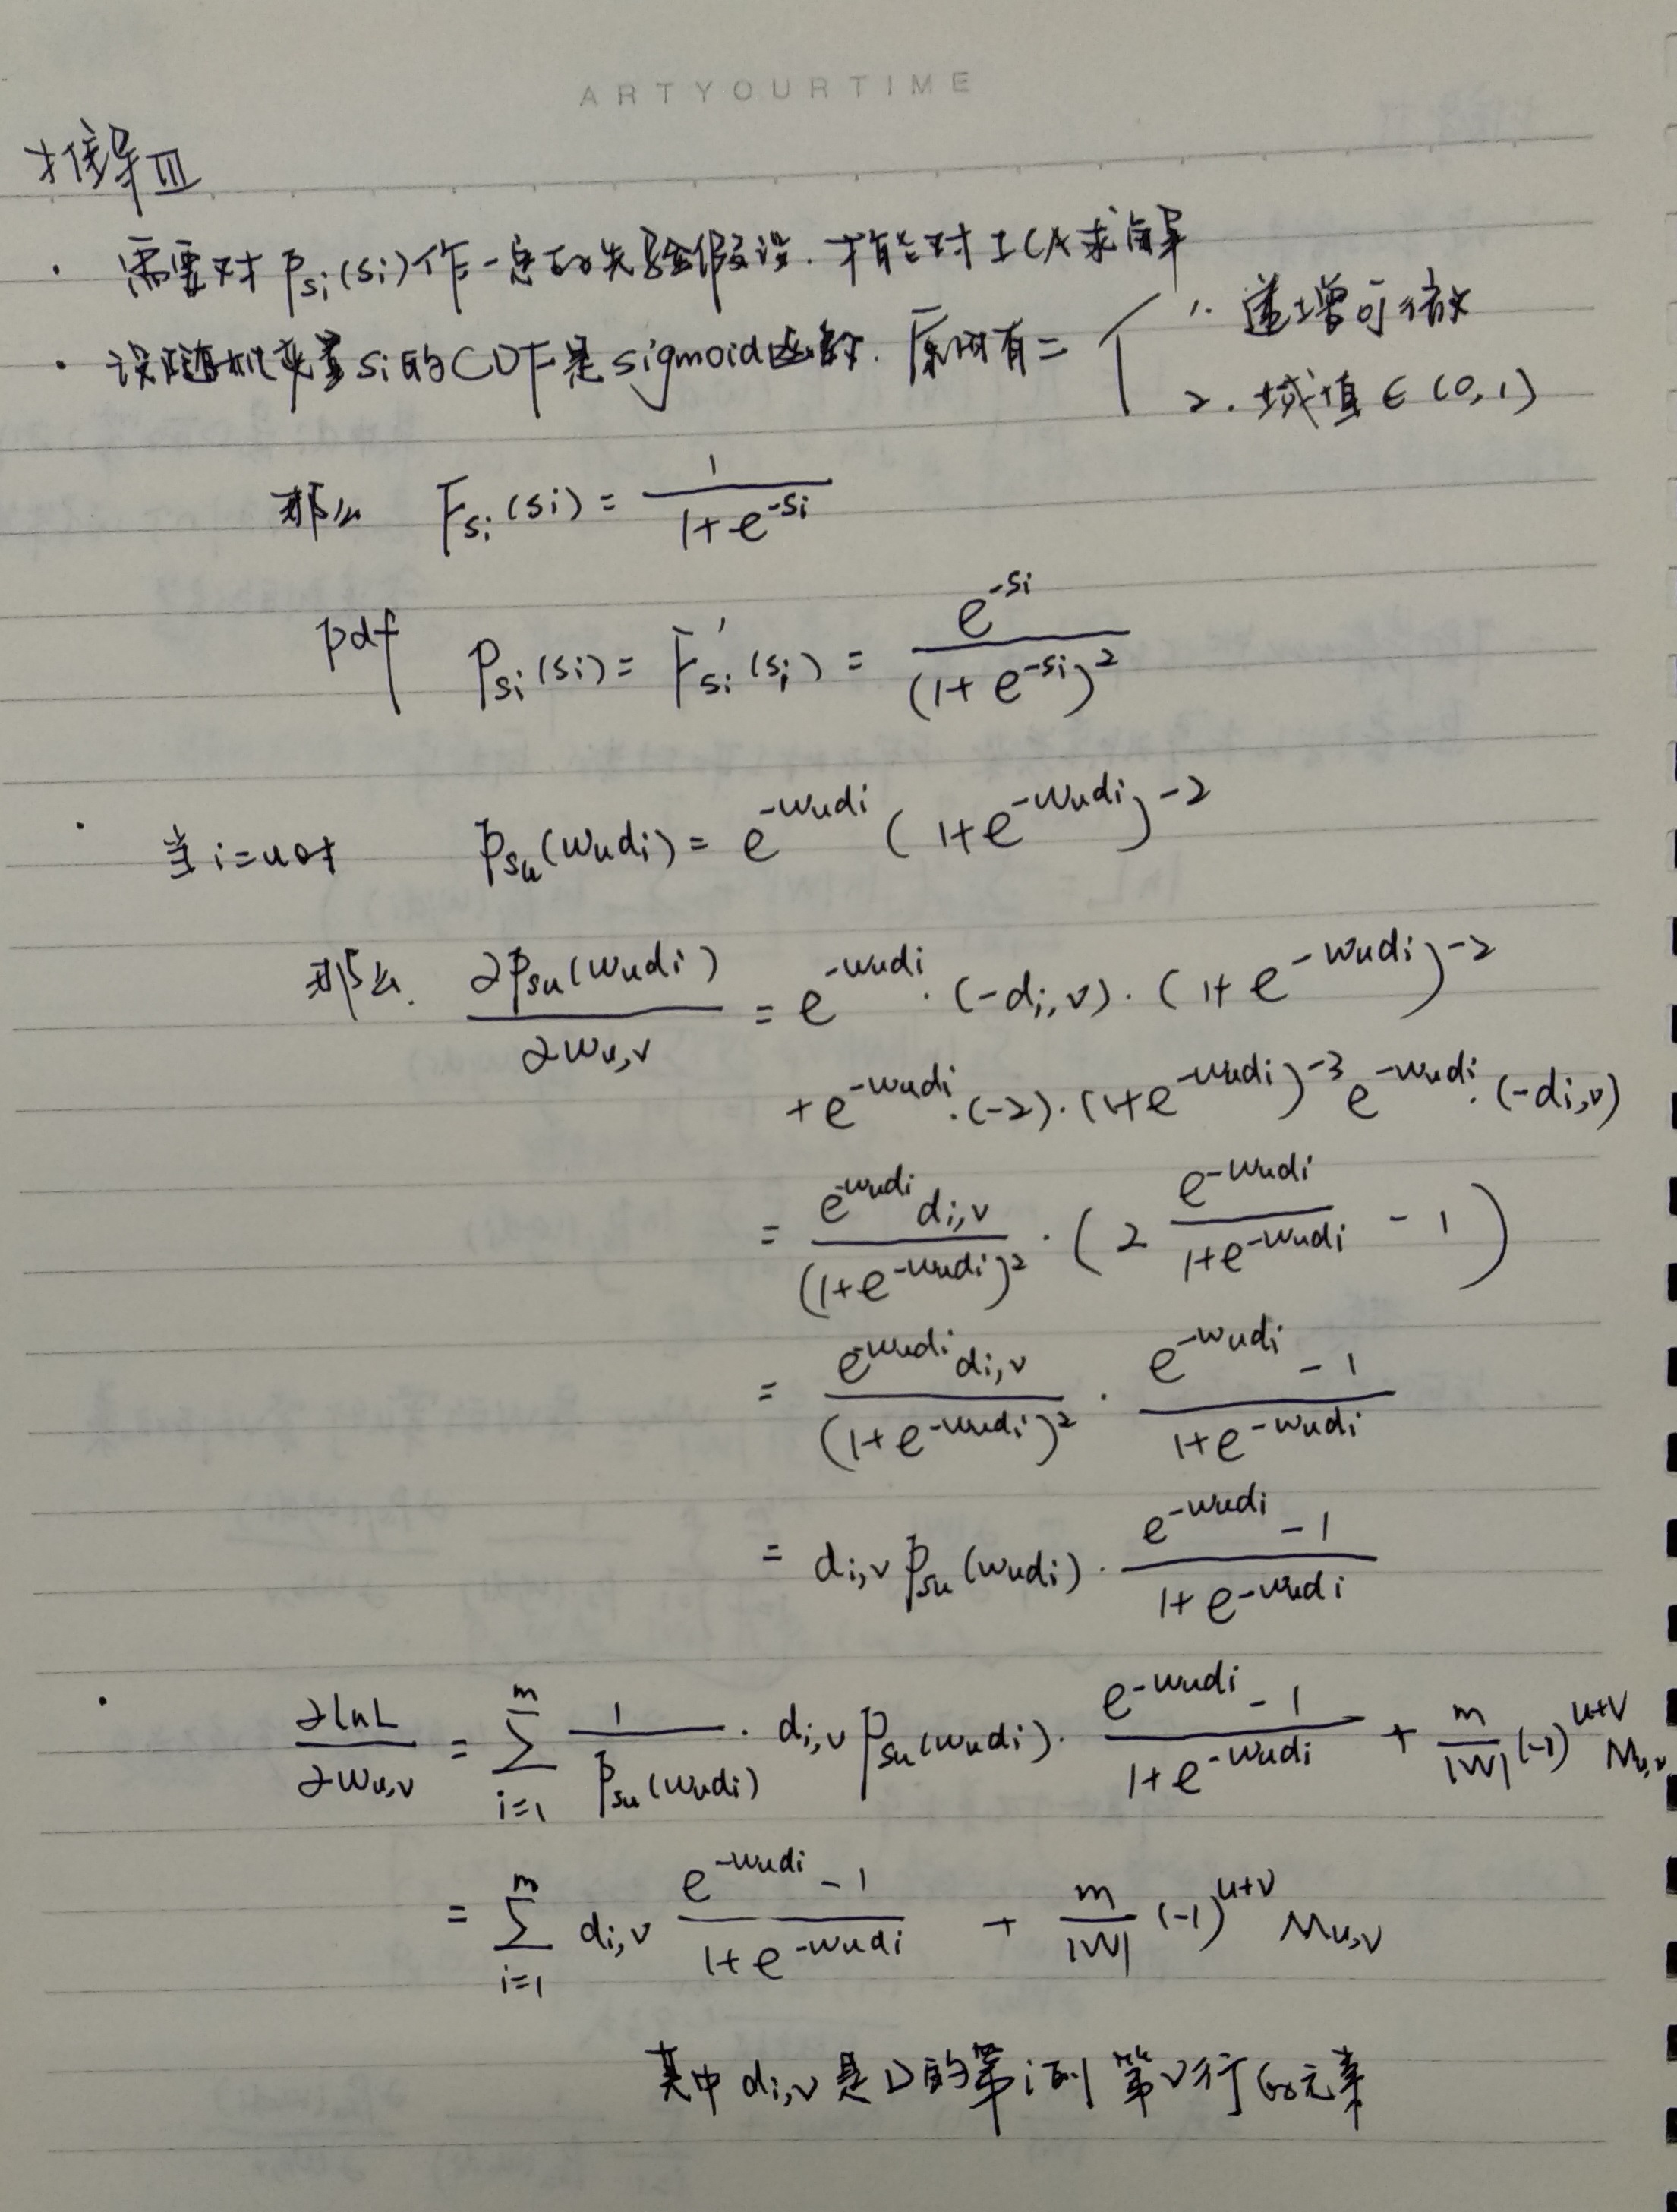 ARTYOURTIME
推导III
· 需要对 p_{si}(si) 作一定的先验假设. 才能对ICA求解
· 设随机变量si的CDF是sigmoid函数. 原因有二 { 1. 递增可微
2. 域值 ∈ (0,1)
那么 F_{si}(si) = \frac{1}{1+e^{-si}}
pdf p_{si}(si) = F'_{si}(si) = \frac{e^{-si}}{(1+e^{-si})^2}
· 当i=u时 p_{su}(w_u d_i) = e^{-w_u d_i} (1+e^{-w_u d_i})^{-2}
那么. \frac{∂p_{su}(w_u d_i)}{∂w_{u,v}} = e^{-w_u d_i} · (-d_{i,v}) · (1+e^{-w_u d_i})^{-2}
+ e^{-w_u d_i} · (-2) · (1+e^{-w_u d_i})^{-3} e^{-w_u d_i} · (-d_{i,v})
= \frac{e^{-w_u d_i} d_{i,v}}{(1+e^{-w_u d_i})^2} · (2 \frac{e^{-w_u d_i}}{1+e^{-w_u d_i}} - 1)
= \frac{e^{-w_u d_i} d_{i,v}}{(1+e^{-w_u d_i})^2} · \frac{e^{-w_u d_i} - 1}{1+e^{-w_u d_i}}
= d_{i,v} p_{su}(w_u d_i) · \frac{e^{-w_u d_i} - 1}{1+e^{-w_u d_i}}
· \frac{∂lnL}{∂w_{u,v}} = \sum_{i=1}^{m} \frac{1}{p_{su}(w_u d_i)} · d_{i,v} p_{su}(w_u d_i) · \frac{e^{-w_u d_i} - 1}{1+e^{-w_u d_i}} + \frac{m}{|W|} (-1)^{u+v} M_{u,v}
= \sum_{i=1}^{m} d_{i,v} \frac{e^{-w_u d_i} - 1}{1+e^{-w_u d_i}} + \frac{m}{|W|} (-1)^{u+v} M_{u,v}
其中 d_{i,v} 是D的第i列第v行的元素